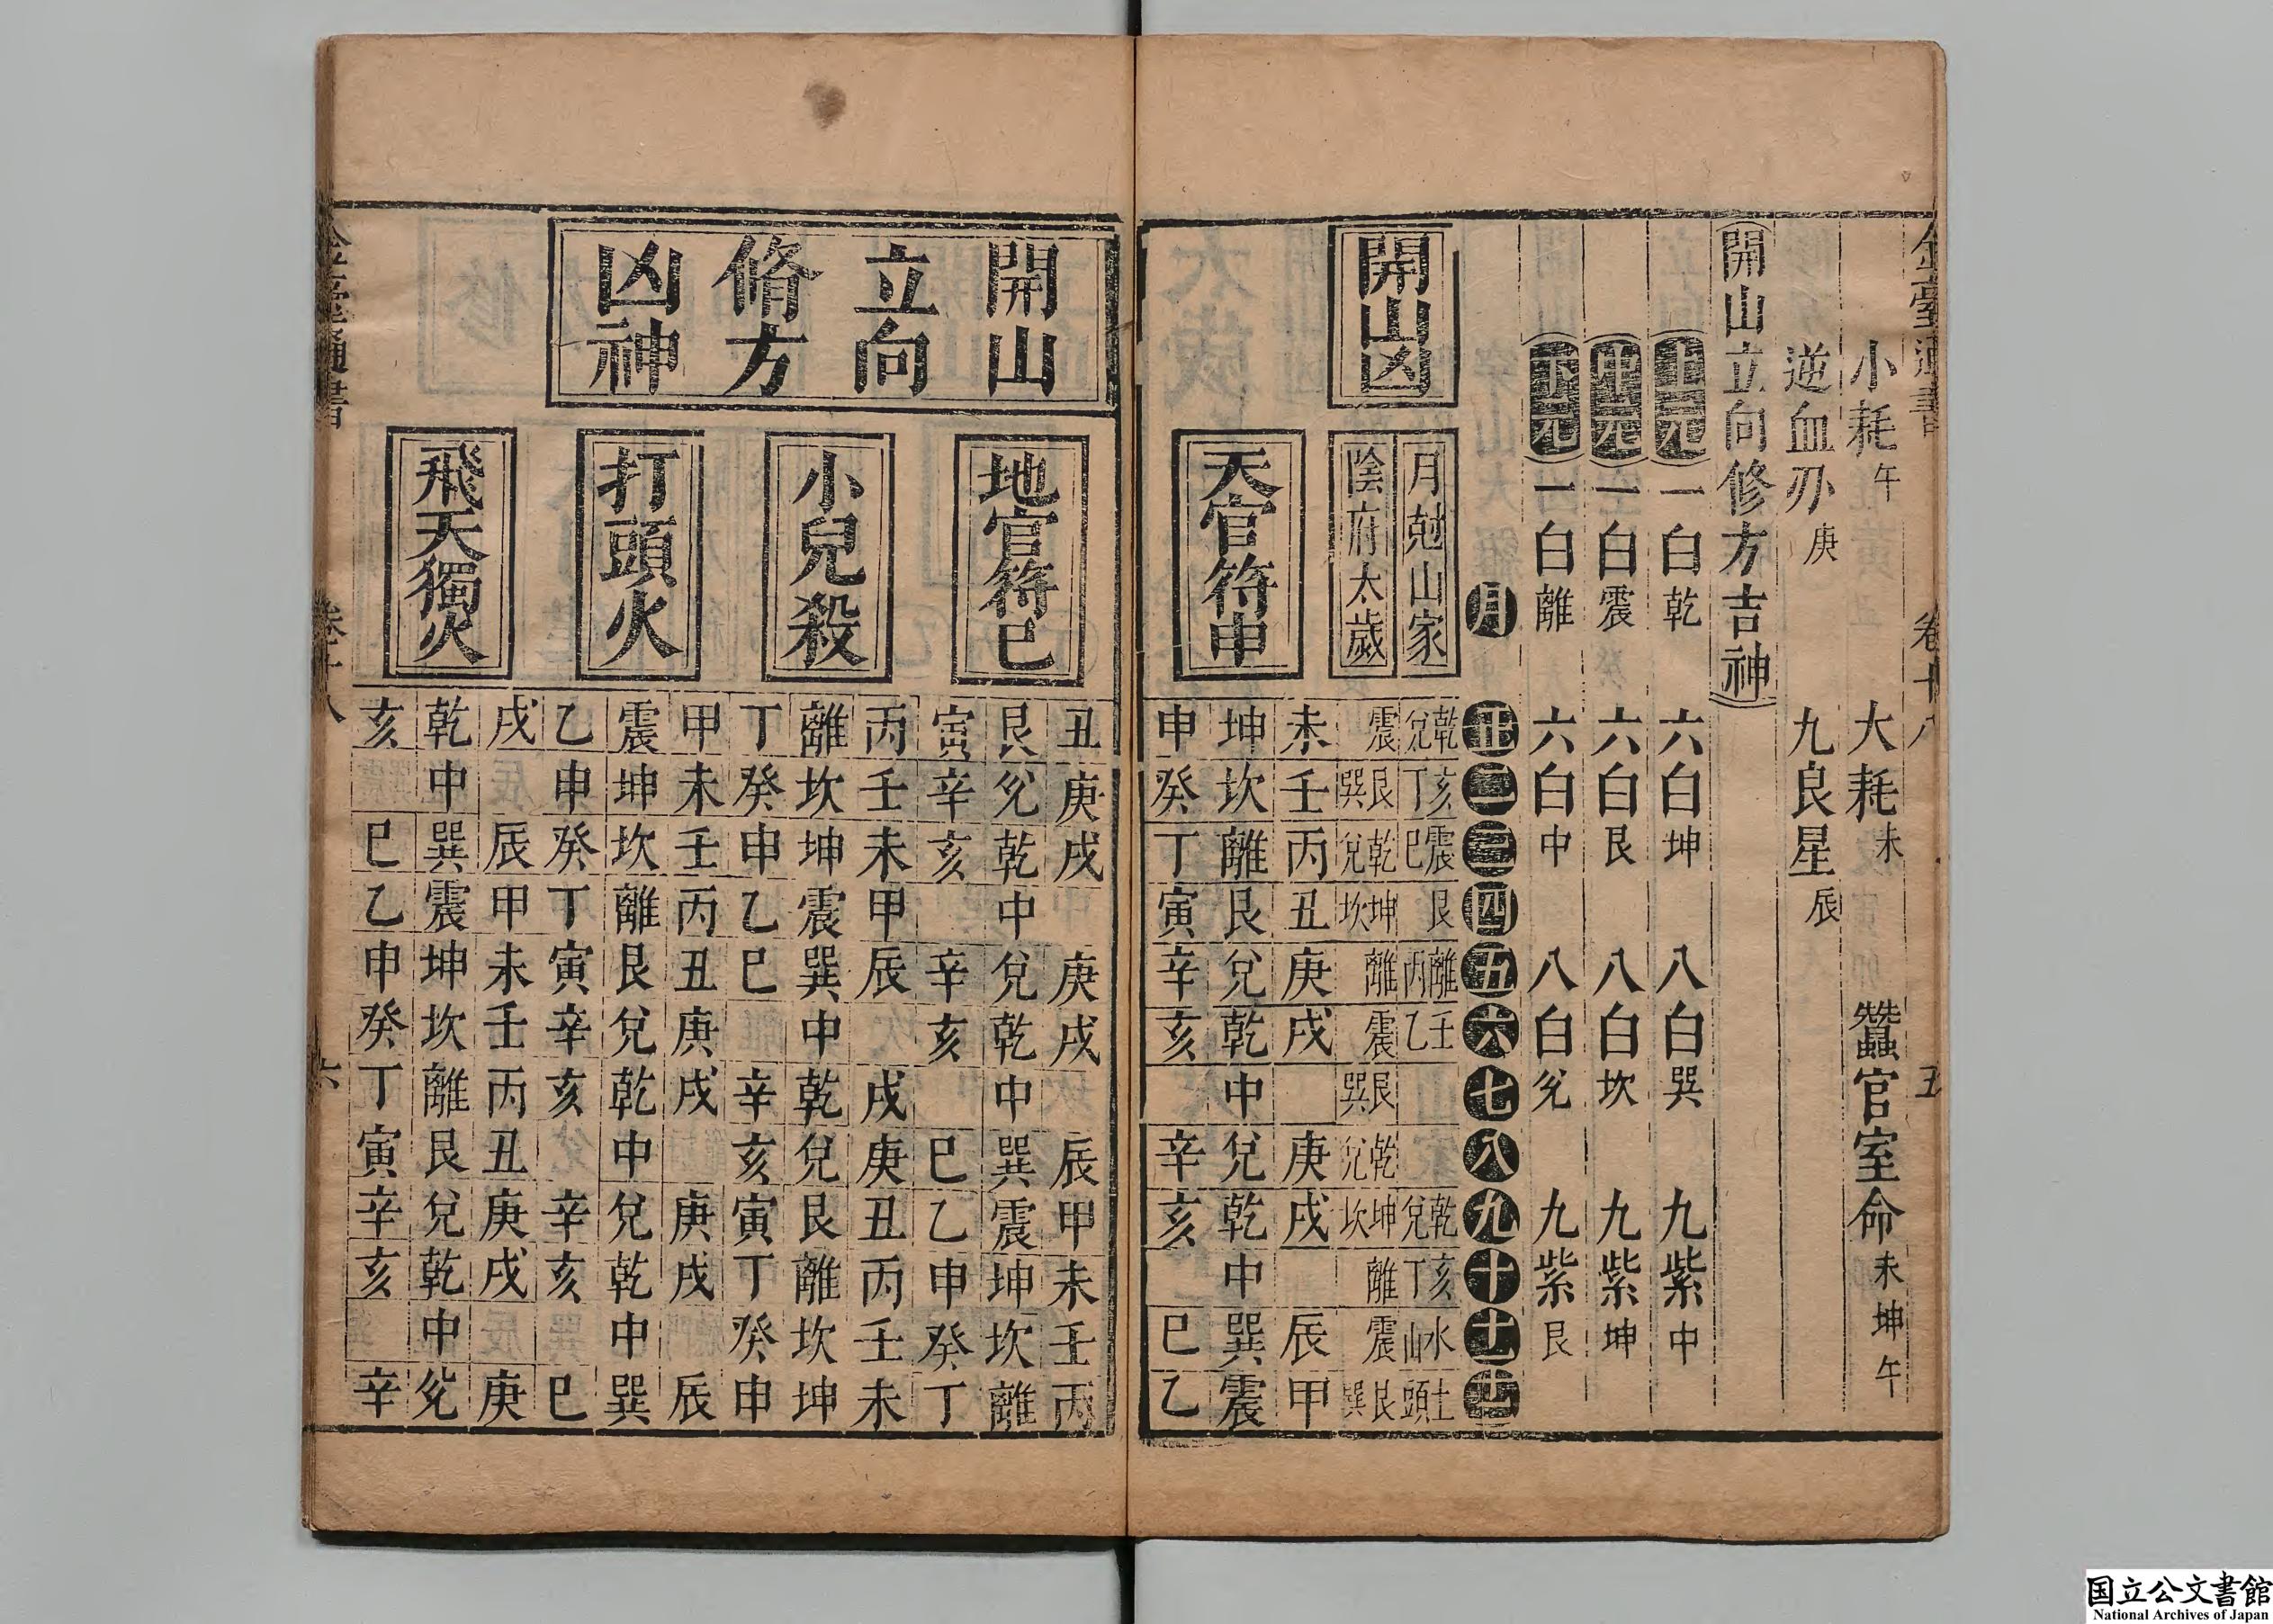 小耗午 大耗未 蠶官室命未坤午
逆血刃庚 九良星辰
開山立向修方吉神
上元 一白乾 六白坤 八白巽 九紫中
中元 一白震 六白艮 八白坎 九紫坤
下元 一白離 六白中 八白兊 九紫艮
月 正 二 三 四 五 六 七 八 九 十 十一 十二
開山凶
月尅山家 乾兌 亥丁 震巳 艮 離丙 壬乙 乾兌 亥丁 水山 土頭
陰府太歲 震 艮巽 乾兌 坤坎 離 震 艮巽 乾兌 坤坎 離 震 艮巽
天官符申
未 壬 丙 丑 庚 戌 庚 戌 辰 甲
坤 坎 離 艮 兌 乾 中 兌 乾 中 巽 震
申 癸 丁 寅 辛 亥 辛 亥 巳 乙
開山
立向
脩方
凶神
地官符巳
丑 庚 戌 庚 戌 辰 甲 未 壬 丙
艮 兊 乾 中 兌 乾 中 巽 震 坤 坎 離
寅 辛 亥 辛 亥 巳 乙 申 癸 丁
小兒殺
丙 壬 未 甲 辰 戌 庚 丑 丙 壬 未
離 坎 坤 震 巽 中 乾 兌 艮 離 坎 坤
丁 癸 申 乙 巳 辛 亥 寅 丁 癸 申
打頭火
甲 未 壬 丙 丑 庚 戌 庚 戌 辰
震 坤 坎 離 艮 兌 乾 中 兌 乾 中 巽
乙 申 癸 丁 寅 辛 亥 辛 亥 巳
飛天獨火
戌 辰 甲 未 壬 丙 丑 庚 戌 庚
乾 中 巽 震 坤 坎 離 艮 兌 乾 中 兊
亥 巳 乙 申 癸 丁 寅 辛 亥 辛
国立公文書館
National Archives of Japan